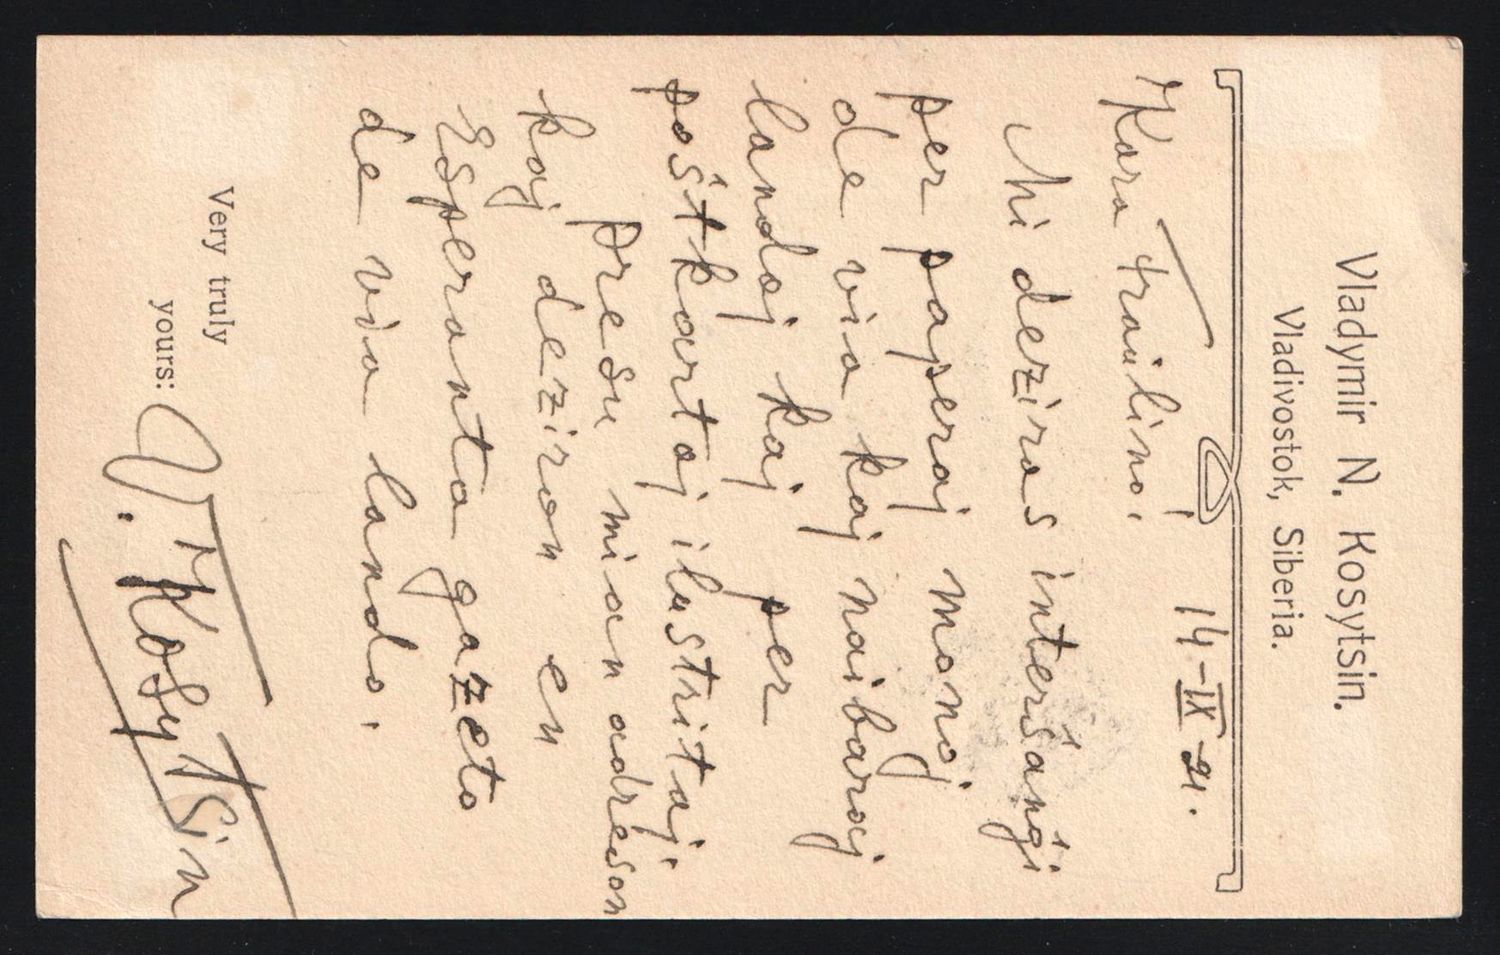 Vladymir N. Kosytsin.
Vladivostok, Siberia.
14-IX-21.
Kara fraŭlino!
Mi deziras interŝanĝi
per paperaj monoj
de via kaj naibaraj
landoj kaj per
poŝtkartoj ilustritaj.
Presu mian adreson
kaj deziron en
Esperanta gazeto
de via lando.
Very truly
yours:
V. Kosytsin